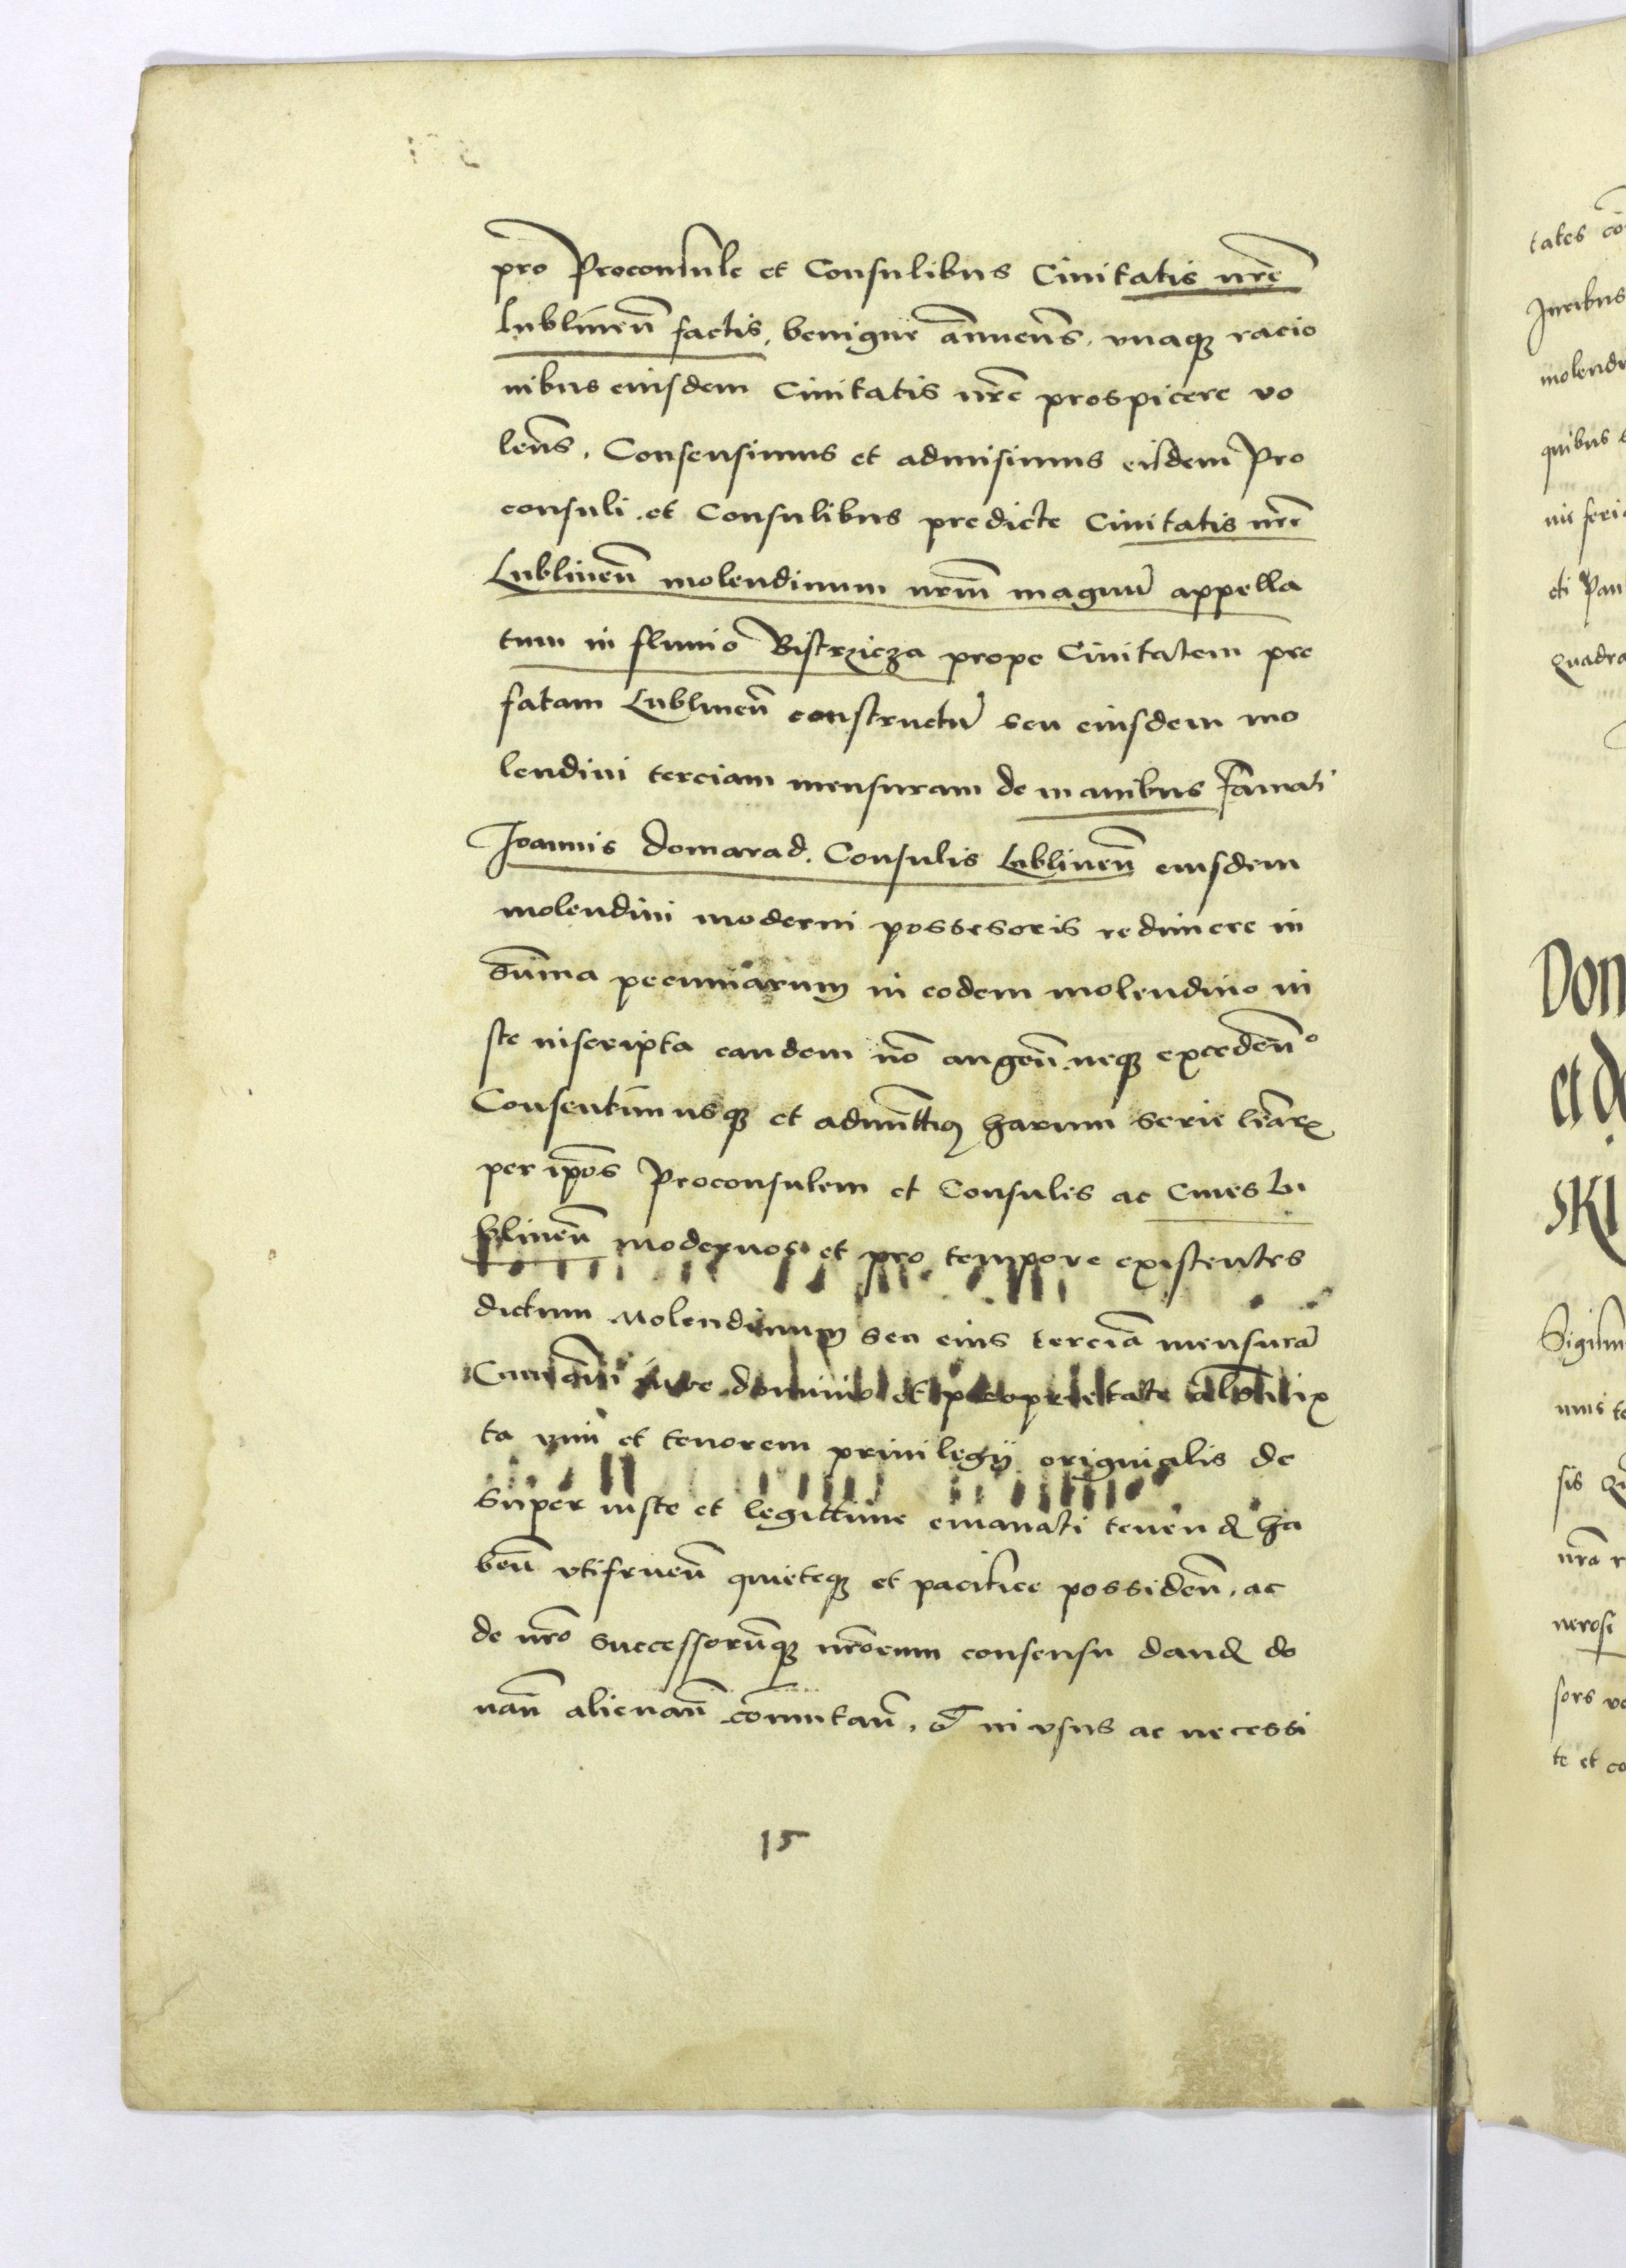 pro Proconsule et Consulibus Ciuitatis nr̃e
Lublineñ factis, benigne añuens, vnaqꝫ racio
nibus eiusdem Ciuitatis nr̃e prospicere vo
leñs, Consensimus et admisimus eisdem Pro
consuli et Consulibus predicte Ciuitatis nr̃e
Lublineñ molendinum nr̃m magnũ appella
tum in fluuio Bistrzicza prope Ciuitatem pre
fatam Lublineñ constructũ seu eiusdem mo
lendini terciam mensuram de manibus famati
Joannis Domarad. Consulis Lublineñ eiusdem
molendini moderni possesoris redimere in
Sum̃a pecuniarum in eodem molendino iu
ste inscripta eandem nõ augeñ. neqꝫ excedeñ
Consentimusqꝫ et admittimꝯ harum serie lr̃arꝝ
per ip̃os Proconsulem et Consules ac Ciues Lu
blineñ modernos et pro tempore existentes
dictum Molendinum seu eius terciã mensurã
Cum om̃i iure dominio et proprietate als iux
ta vim et tenorem priuilegij originalis de
super iuste et legittime emanati tenenđ ha
beñ vtifrueñ quieteqꝫ et pacifice possideñ. ac
de nr̃o successorũqꝫ nr̃orum consensu danđ do
nañ alienañ com̃utañ. et in vsus ac necessi
15
tates
Juribus
molend
quibus
nis feri
cti Pau
Quadra
Don
et d
SKI
Sigism
sis
nr̃a
nerosi
sors
te et co